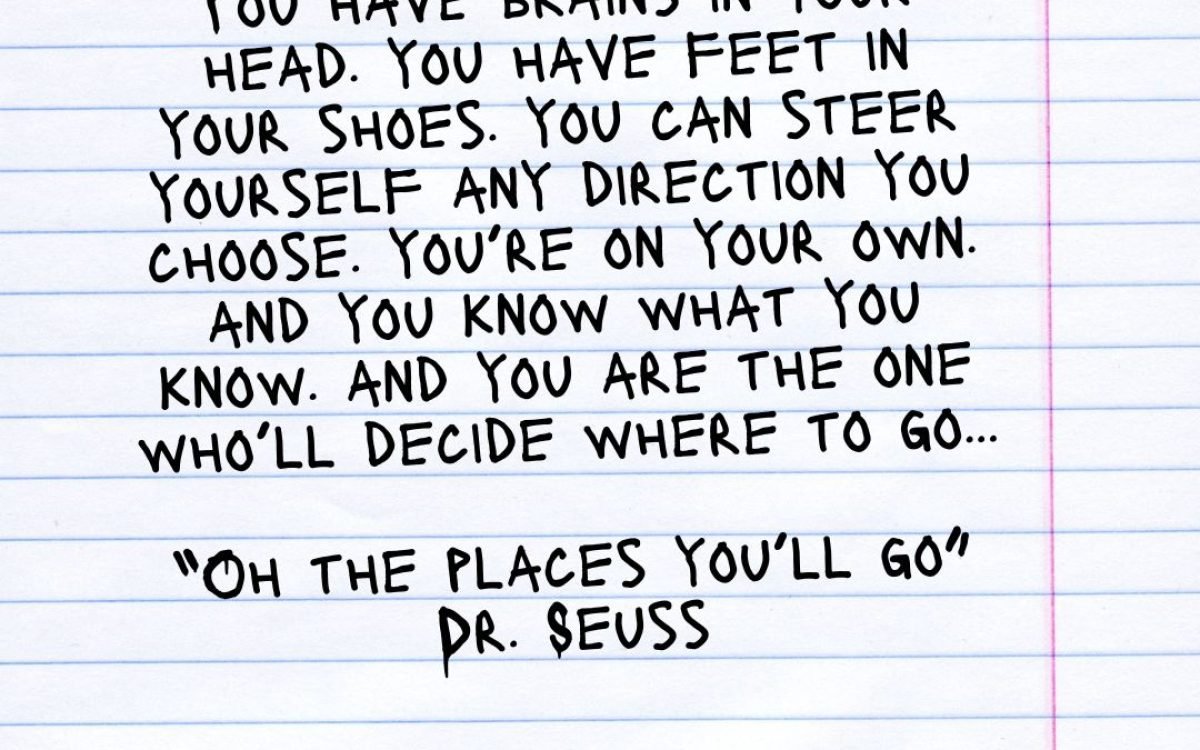 YOU HAVE BRAINS IN YOUR
HEAD. YOU HAVE FEET IN
YOUR SHOES. YOU CAN STEER
YOURSELF ANY DIRECTION YOU
CHOOSE. YOU'RE ON YOUR OWN.
AND YOU KNOW WHAT YOU
KNOW. AND YOU ARE THE ONE
WHO'LL DECIDE WHERE TO GO...
"OH THE PLACES YOU'LL GO"
DR. SEUSS